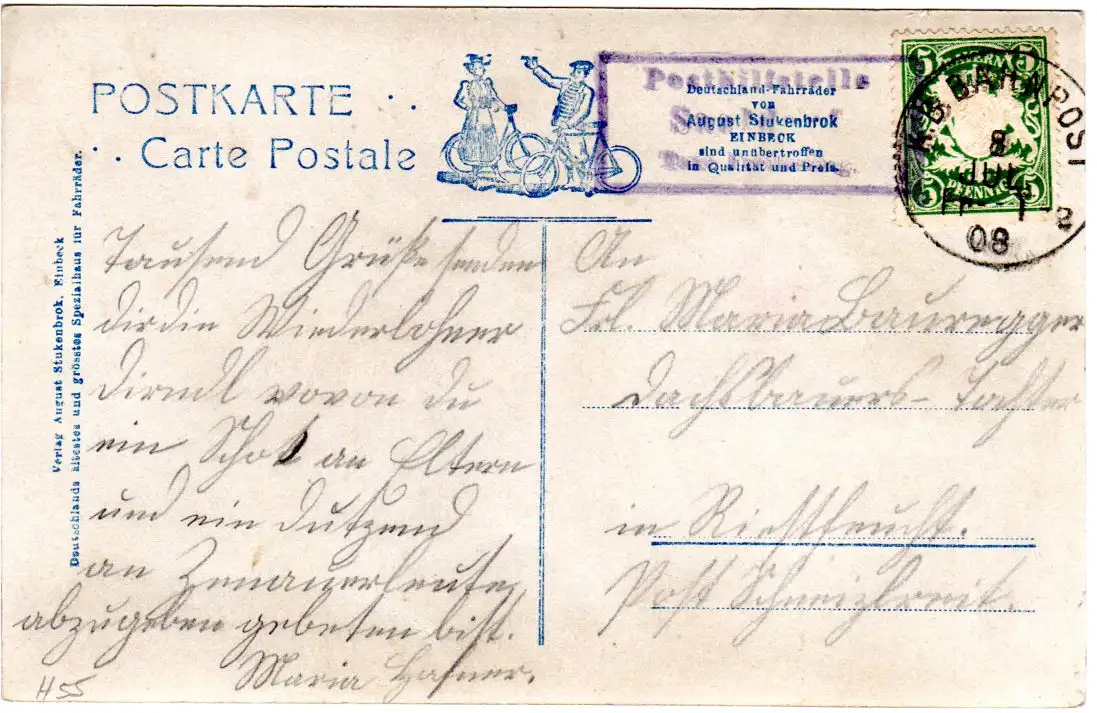 POSTKARTE
Carte Postale
Posthilfstelle
Deutschland-Fahrräder
von
August Stukenbrok
EINBECK
sind unübertroffen
in Qualität und Preis.
5 5
PFENNIG
5 5
K.B. BAHNPOST
8
JUL
08
Verlag August Stukenbrok, Einbeck
Deutschlands ältestes und grösstes Spezialhaus für Fahrräder.
Tausend Grüße senden
dir die Wiederlohner
Dirndl wovon du
ein Schok an Eltern
und ein Dutzend
an Zenauerleute
abzugeben gebeten bist.
Maria Hafner.
An
Frl. Maria Bauregger
Dachsbauers-Tochter
in Ristfeucht.
Post Schneizlreit.
H55